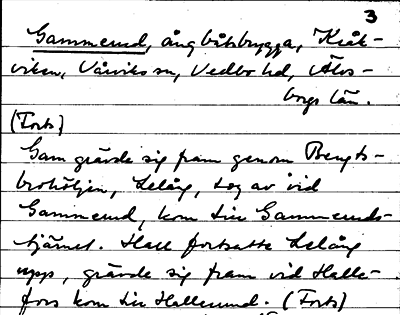 3
Gammerud, ångbåtsbrygga, Kråk-
viken, Vårviks sn, Vedbo hd, Älvs-
borgs län.
(Forts)
Gam grävde sig fram genom Bengts-
brohöljen, Lelång, tog av vid
Gammerud, kom till Gammeruds-
tjärnet. Hall fortsatte Lelång
upp, grävde sig fram vid Halle-
fors kom till Hallerund. (Forts)